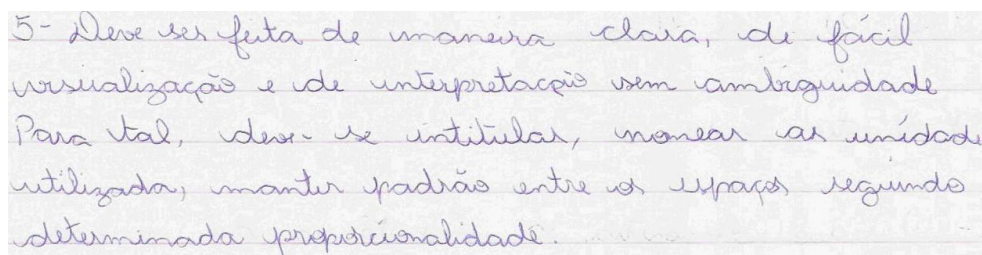 5- Deve ser feita de maneira clara, de fácil
visualização e de interpretação sem ambiguidade
Para tal, deve-se intitular, nomear as unidade
utilizada, manter padrão entre os espaços segundo
determinada proporcionalidade.